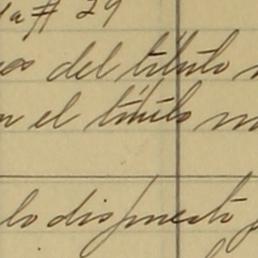 # 29
del título
el título
lo dispuesto